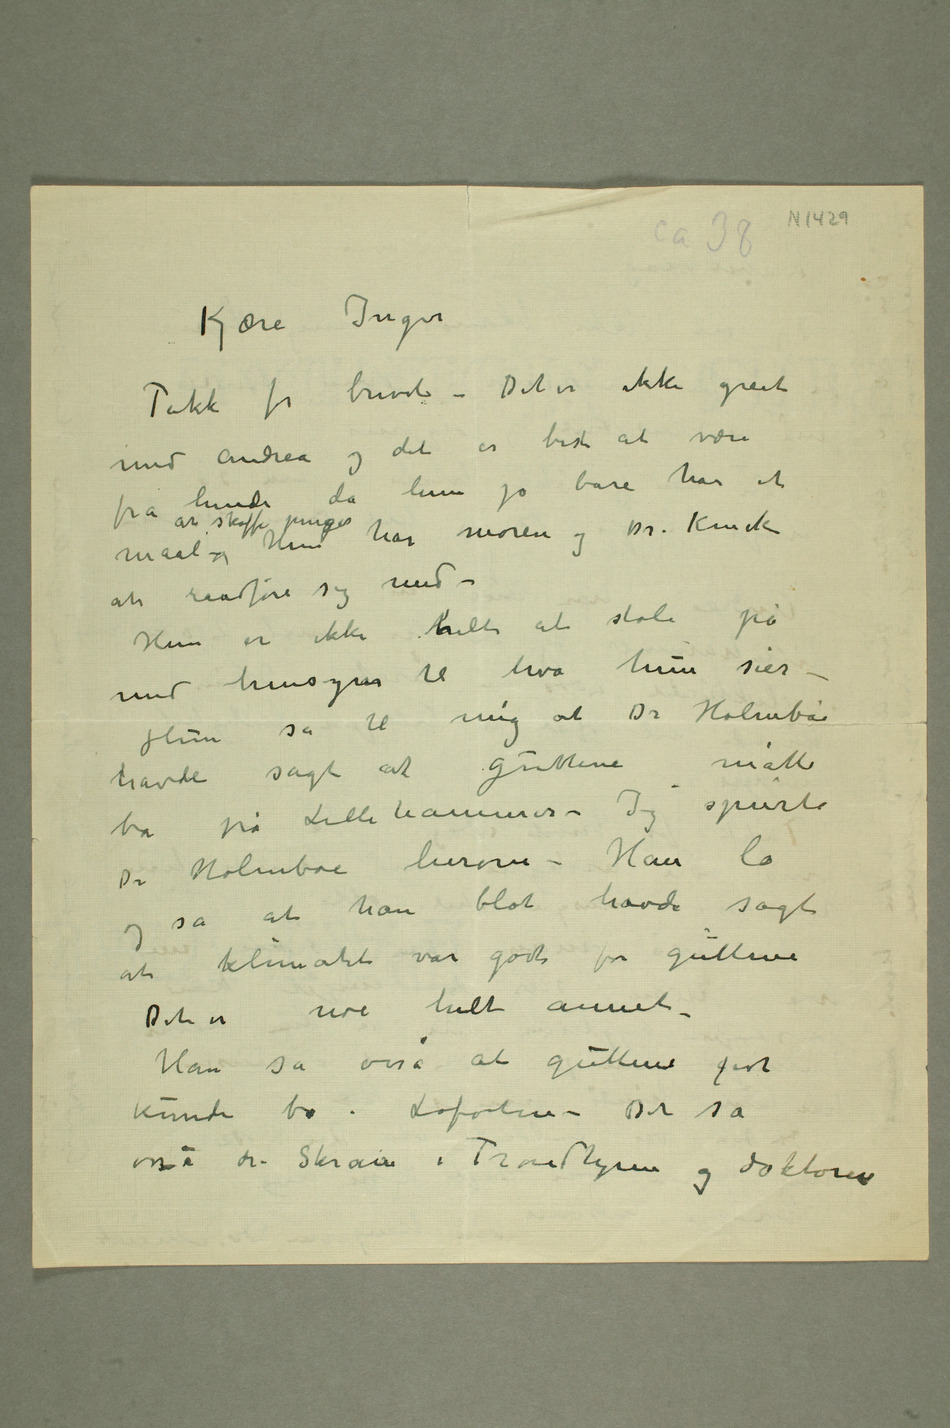 N 1429
ca 38
Kjære Inger
Takk for brevet – Det er ikke greit
med Andrea og det er best at være
fra hende da hun jo bare har et
at skaffe penge
maal – og Hun har moren og Dr. Kinck
at raadføre sig med –
Hun er ikke helt at stole på
med hensyn til hva hun sier –
Hun sa til mig at Dr Holmboe
havde sagt at guttene måtte
bo på Lillehammer – Jeg spurte
Dr Holmboe herom – Han lo
og sa at han blot havde sagt
at klimatet var godt for guttene
Det er noe helt annet –
Han sa også at guttene godt
kunde bo i Lofoten – Det sa
også dr. i Trondhjem og doktoren